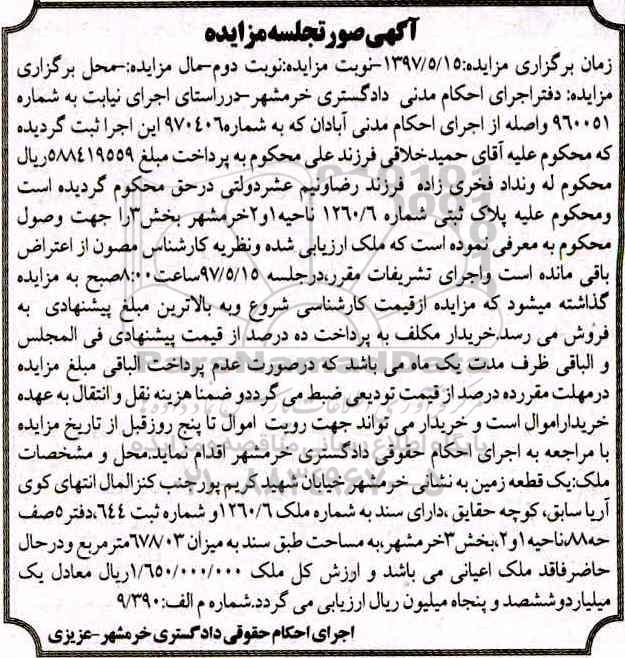 آگهی صورتجلسه مزایده
زمان برگزاری مزایده:۱۳۹۷/۵/۱۵-نوبت مزایده:نوبت دوم-مال مزایده:-محل برگزاری
مزایده: دفتراجرای احکام مدنی  دادگستری خرمشهر-درراستای اجرای نیابت به شماره
۹۶۰۰۵۱ واصله از اجرای احکام مدنی آبادان که به شماره۹۷۰۴۰۶ این اجرا ثبت گردیده
که محکوم علیه آقای حمیدخلاقی فرزند علی محکوم به پرداخت مبلغ ۵۸۸۴۱۹۵۵۹ریال
محکوم له ونداد فخری زاده  فرزند رضاونیم عشردولتی درحق محکوم گردیده است
ومحکوم علیه پلاک ثبتی شماره ۱۲۶۰/۶ ناحیه۱و۲خرمشهر بخش۳را جهت وصول
محکوم به معرفی نموده است که ملک ارزیابی شده ونظریه کارشناس مصون از اعتراض
باقی مانده است واجرای تشریفات مقرر،درجلسه ۹۷/۵/۱۵ساعت۸:۰۰صبح به مزایده
گذاشته میشود که مزایده ازقیمت کارشناسی شروع وبه بالاترین مبلغ پیشنهادی  به
فروش می رسد.خریدار مکلف به پرداخت ده درصد از قیمت پیشنهادی فی المجلس
و الباقی ظرف مدت یک ماه می باشد که درصورت عدم پرداخت الباقی مبلغ مزایده
درمهلت مقررده درصد از قیمت تودیعی ضبط می گرددو ضمنا هزینه نقل و انتقال به عهده
خریداراموال است و خریدار می تواند جهت رویت  اموال تا پنج روزقبل از تاریخ مزایده
با مراجعه به اجرای احکام حقوقی دادگستری خرمشهر اقدام نماید.محل و مشخصات
ملک:یک قطعه زمین به نشانی خرمشهر خیابان شهید کریم پورجنب کنزالمال انتهای کوی
آریا سابق، کوچه حقایق ،دارای سند به شماره ملک ۱۲۶۰/۶و شماره ثبت ۶۴۴،دفتر۵صف
حه۸۸،ناحیه۱و۲،بخش۳خرمشهر،به مساحت طبق سند به میزان ۶۷۸/۰۳مترمربع ودرحال
حاضرفاقد ملک اعیانی می باشد و ارزش کل ملک ۱/۶۵۰/۰۰۰/۰۰۰ریال معادل یک
میلیاردوششصد و پنجاه میلیون ریال ارزیابی می گردد.شماره م الف:۹/۳۹۰
اجرای احکام حقوقی دادگستری خرمشهر-عزیزی
ParsNamadData
پایگاه اطلاع رسانی مناقصه و مزایده